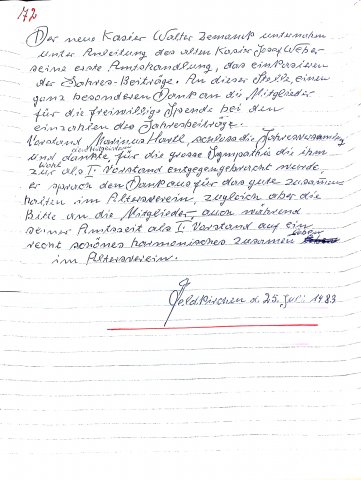 72
Der neue Kasier Walter Zemanek unternahm
unter Anleitung des alten Kasier Josef Weber
seine erste Amtshandlung, das einkasieren
der Jahres-Beiträge. An dieser Stelle, einen
ganz besonderen Dank an die Mitglieder
für die freiwillige Spende bei den
einzahlen des Jahresbeiträge.
Vorstand Marinus Hartl, schloss die Jahresversamlung
und dankte, für die grosse Sympathie die ihm
zur als I. Vorstand entgegengebracht wurde,
er sprach den Dank aus für das gute zusamen
halten im Altersverein, zugleich aber die
Bitte an die Mitglieder, auch während
seiner Amtszeit als I. Vorstand auf ein
recht schönes harmonisches zusamen leben
im Altersverein.
Feldkirchen d. 25. Juli 1983